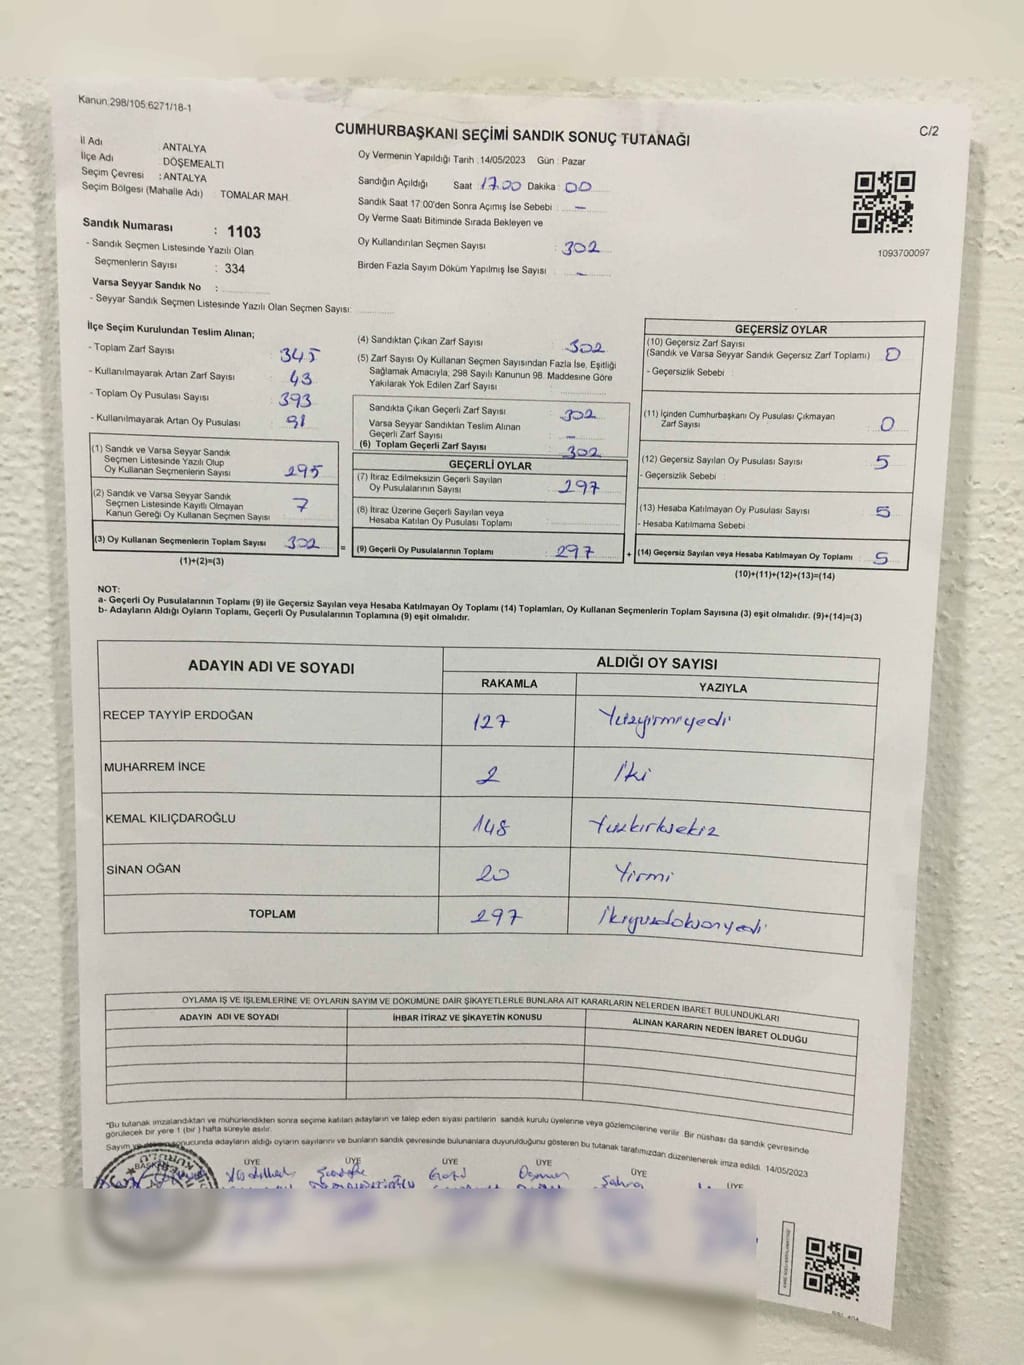 Kanun,298/105;6271/18-1
CUMHURBAŞKANI SEÇİMİ SANDIK SONUÇ TUTANAĞI
C/2
İl Adı : ANTALYA
İlçe Adı : DÖŞEMEALTI
Seçim Çevresi : ANTALYA
Seçim Bölgesi (Mahalle Adı) : TOMALAR MAH.
Sandık Numarası : 1103
- Sandık Seçmen Listesinde Yazılı Olan
Seçmenlerin Sayısı : 334
Varsa Seyyar Sandık No :
- Seyyar Sandık Seçmen Listesinde Yazılı Olan Seçmen Sayısı:
Oy Vermenin Yapıldığı Tarih :14/05/2023 Gün : Pazar
Sandığın Açıldığı Saat :17.00 Dakika :00
Sandık Saat 17:00'den Sonra Açımış İse Sebebi : -
Oy Verme Saati Bitiminde Sırada Bekleyen ve
Oy Kullandırılan Seçmen Sayısı : 302
Birden Fazla Sayım Döküm Yapılmış İse Sayısı : -
1093700097
İlçe Seçim Kurulundan Teslim Alınan;
- Toplam Zarf Sayısı 345
- Kullanılmayarak Artan Zarf Sayısı 43
- Toplam Oy Pusulası Sayısı 393
- Kullanılmayarak Artan Oy Pusulası 91
(1) Sandık ve Varsa Seyyar Sandık
Seçmen Listesinde Yazılı Olup
Oy Kullanan Seçmenlerin Sayısı 295
(2) Sandık ve Varsa Seyyar Sandık
Seçmen Listesinde Kayıtlı Olmayan
Kanun Gereği Oy Kullanan Seçmen Sayısı 7
(3) Oy Kullanan Seçmenlerin Toplam Sayısı 302
(1)+(2)=(3)
=
(4) Sandıktan Çıkan Zarf Sayısı 302
(5) Zarf Sayısı Oy Kullanan Seçmen Sayısından Fazla İse, Eşitliği
Sağlamak Amacıyla, 298 Sayılı Kanunun 98. Maddesine Göre
Yakılarak Yok Edilen Zarf Sayısı
Sandıkta Çıkan Geçerli Zarf Sayısı 302
Varsa Seyyar Sandıktan Teslim Alınan
Geçerli Zarf Sayısı -
(6) Toplam Geçerli Zarf Sayısı 302
GEÇERLİ OYLAR
(7) İtiraz Edilmeksizin Geçerli Sayılan
Oy Pusulalarının Sayısı 297
(8) İtiraz Üzerine Geçerli Sayılan veya
Hesaba Katılan Oy Pusulası Toplamı
(9) Geçerli Oy Pusulalarının Toplamı 297
+
GEÇERSİZ OYLAR
(10) Geçersiz Zarf Sayısı
(Sandık ve Varsa Seyyar Sandık Geçersiz Zarf Toplamı) 0
- Geçersizlik Sebebi :
(11) İçinden Cumhurbaşkanı Oy Pusulası Çıkmayan
Zarf Sayısı 0
(12) Geçersiz Sayılan Oy Pusulası Sayısı 5
- Geçersizlik Sebebi :
(13) Hesaba Katılmayan Oy Pusulası Sayısı 5
- Hesaba Katılmama Sebebi :
(14) Geçersiz Sayılan veya Hesaba Katılmayan Oy Toplamı 5
(10)+(11)+(12)+(13)=(14)
NOT:
a- Geçerli Oy Pusulalarının Toplamı (9) ile Geçersiz Sayılan veya Hesaba Katılmayan Oy Toplamı (14) Toplamları, Oy Kullanan Seçmenlerin Toplam Sayısına (3) eşit olmalıdır. (9)+(14)=(3)
b- Adayların Aldığı Oyların Toplamı, Geçerli Oy Pusulalarının Toplamına (9) eşit olmalıdır.
ADAYIN ADI VE SOYADI
ALDIĞI OY SAYISI
RAKAMLA YAZIYLA
RECEP TAYYİP ERDOĞAN 127 Yüzyirmiyedi
MUHARREM İNCE 2 İki
KEMAL KILIÇDAROĞLU 148 Yuzkırksekiz
SİNAN OĞAN 20 Yirmi
TOPLAM 297 İkiyuzdoksanyedi
OYLAMA İŞ VE İŞLEMLERİNE VE OYLARIN SAYIM VE DÖKÜMÜNE DAİR ŞİKAYETLERLE BUNLARA AİT KARARLARIN NELERDEN İBARET BULUNDUKLARI
ADAYIN ADI VE SOYADI İHBAR İTİRAZ VE ŞİKAYETİN KONUSU ALINAN KARARIN NEDEN İBARET OLDUĞU
*Bu tutanak imzalandıktan ve mühürlendikten sonra seçime katılan adayların ve talep eden siyasi partilerin sandık kurulu üyelerine veya gözlemcilerine verilir. Bir nüshası da sandık çevresinde
görülecek bir yere 1 (bir) hafta süreyle asılır.
Sayım ve sonucunda adayların aldığı oyların sayılarını ve bunların sandık çevresinde bulunanlara duyurulduğunu gösteren bu tutanak tarafımızdan düzenlenerek imza edildi. 14/05/2023
ÜYE ÜYE ÜYE ÜYE ÜYE ÜYE
Osman Sahra